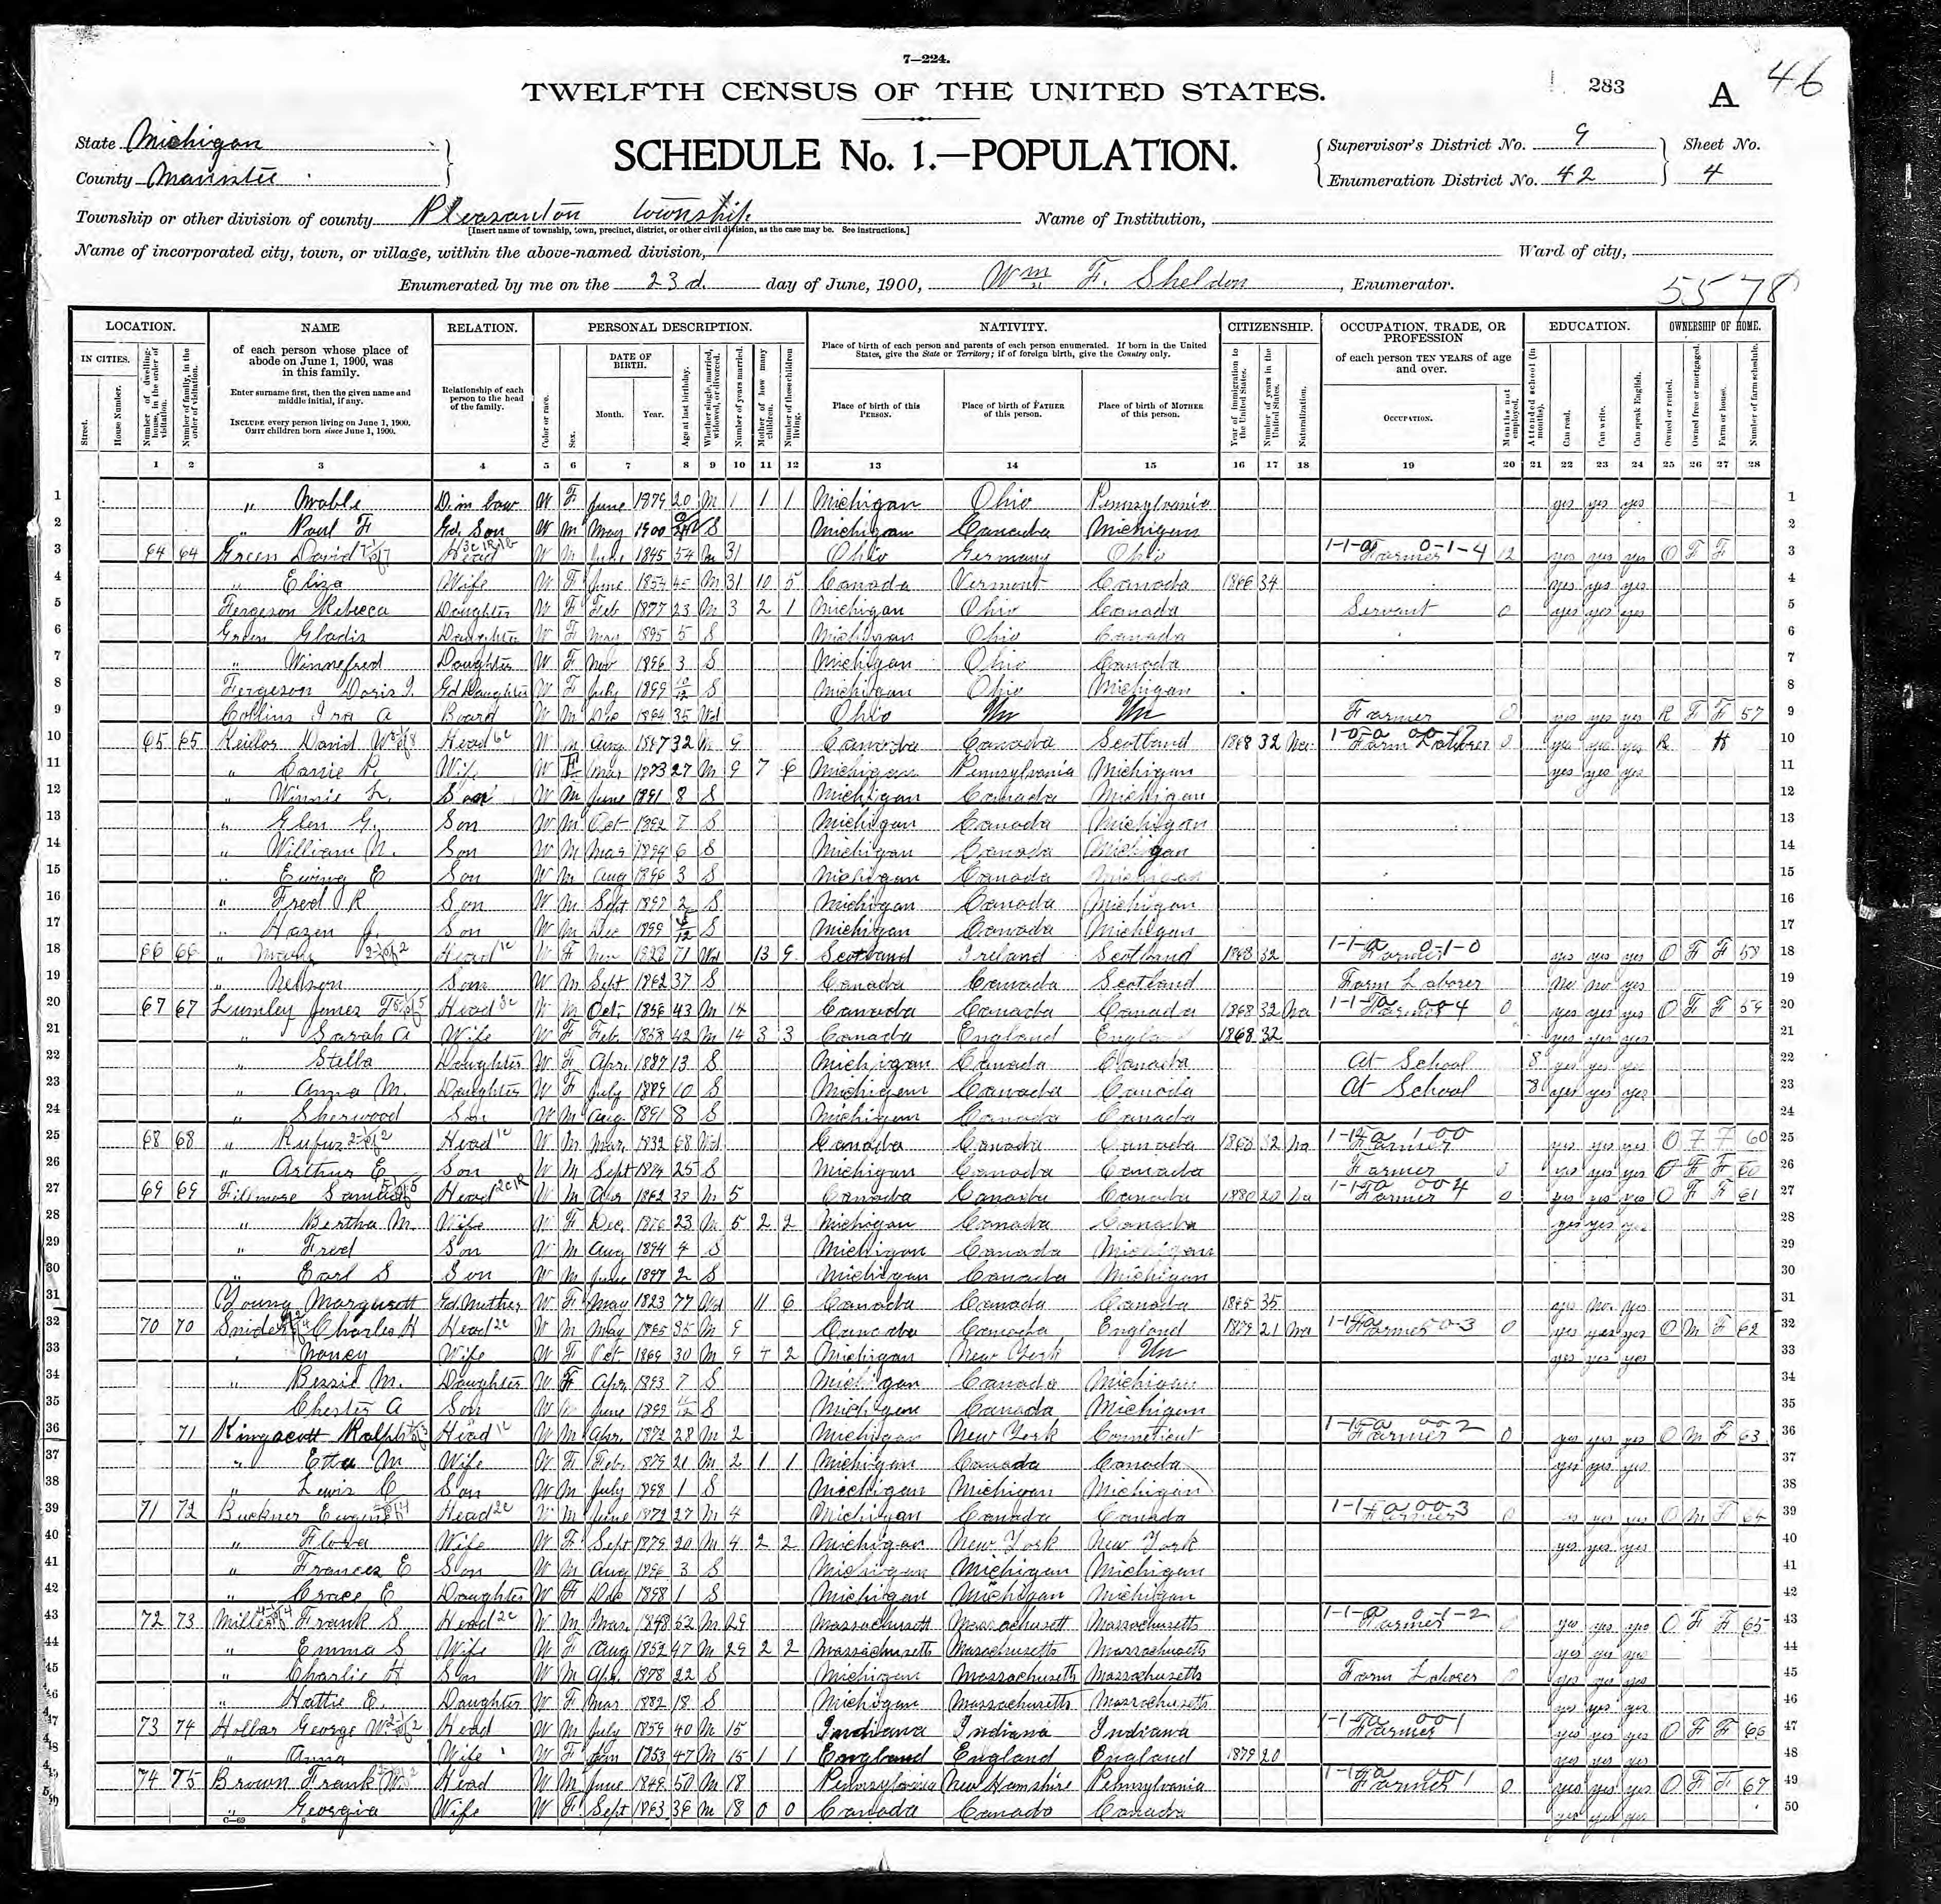 7—224.
TWELFTH CENSUS OF THE UNITED STATES.
283 A 46
State Michigan
County Manistee
SCHEDULE No. 1.—POPULATION.
Supervisor's District No. 9 Sheet No.
Enumeration District No. 42 4
Township or other division of county Pleasanton township Name of Institution,
[Insert name of township, town, precinct, district, or other civil division, as the case may be. See instructions.]
Name of incorporated city, town, or village, within the above-named division, Ward of city,
Enumerated by me on the 23d. day of June, 1900, Wm F. Sheldon, Enumerator.
5578
LOCATION. NAME RELATION. PERSONAL DESCRIPTION. NATIVITY. CITIZENSHIP. OCCUPATION, TRADE, OR PROFESSION EDUCATION. OWNERSHIP OF HOME.
IN CITIES. Street. House Number. Number of dwelling-house, in the order of visitation. Number of family, in the order of visitation.
of each person whose place of abode on June 1, 1900, was in this family.
Enter surname first, then the given name and middle initial, if any.
INCLUDE every person living on June 1, 1900. OMIT children born since June 1, 1900.
Relationship of each person to the head of the family.
Color or race. Sex. DATE OF BIRTH. Month. Year. Age at last birthday. Whether single, married, widowed, or divorced. Number of years married. Mother of how many children. Number of these children living.
Place of birth of each person and parents of each person enumerated. If born in the United States, give the State or Territory; if of foreign birth, give the Country only.
Place of birth of this PERSON. Place of birth of FATHER of this person. Place of birth of MOTHER of this person.
Year of immigration to the United States. Number of years in the United States. Naturalization.
of each person TEN YEARS of age and over.
OCCUPATION. Months not employed.
Attended school (in months). Can read. Can write. Can speak English.
Owned or rented. Owned free or mortgaged. Farm or house. Number of farm schedule.
1 2 3 4 5 6 7 8 9 10 11 12 13 14 15 16 17 18 19 20 21 22 23 24 25 26 27 28
1 " Mable D. in Law W F June 1879 20 M 1 1 1 Michigan Ohio Pennsylvania yes yes yes 1
2 " Paul F Gd. Son W M May 1900 S Michigan Canada Michigan 2
3 64 64 Green David Head W M June 1845 54 M 31 Ohio Germany Ohio Farmer 12 yes yes yes O F F 3
4 " Eliza Wife W F June 1854 45 M 31 10 5 Canada Vermont Canada 1866 34 yes yes yes 4
5 Fergeson Rebeca Daughter W F Feb 1877 23 M 3 2 1 Michigan Ohio Canada Servant 0 yes yes yes 5
6 Green Gladis Daughter W F May 1895 5 S Michigan Ohio Canada 6
7 " Winnefred Daughter W F Nov 1896 3 S Michigan Ohio Canada 7
8 Fergeson Doris I. Gd Daughter W F July 1899 10/12 S Michigan Ohio Michigan 8
9 Collins Ira A Board W M Dec 1864 35 Wd Ohio Un Un Farmer 0 yes yes yes R F F 57 9
10 65 65 Keillor David W Head W M Aug 1867 32 M 9 Canada Canada Scotland 1868 32 Na Farm Laborer 0 yes yes yes R H 10
11 " Carrie P. Wife W F Mar 1873 27 M 9 7 6 Michigan Pennsylvania Michigan yes yes yes 11
12 " Winnie L. Son W M June 1891 8 S Michigan Canada Michigan 12
13 " Glen G. Son W M Oct 1892 7 S Michigan Canada Michigan 13
14 " William N. Son W M Mar 1894 6 S Michigan Canada Michigan 14
15 " Ewing E Son W M Aug 1896 3 S Michigan Canada Michigan 15
16 " Fred R Son W M Sept 1897 2 S Michigan Canada Michigan 16
17 " Hazen J. Son W M Dec 1899 S Michigan Canada Michigan 17
18 66 66 " Mary Head W F Nov 1828 71 Wd 13 9 Scotland Ireland Scotland 1868 32 Farmer yes yes yes O F F 58 18
19 " Nelson Son W M Sept 1862 37 S Canada Canada Scotland Farm Laborer No no yes 19
20 67 67 Lumley James T Head W M Oct. 1856 43 M 14 Canada Canada Canada 1868 32 Na Farmer 0 yes yes yes O F F 59 20
21 " Sarah A Wife W F Feb. 1858 42 M 14 3 3 Canada England England 1868 32 yes yes yes 21
22 " Stella Daughter W F Apr. 1887 13 S Michigan Canada Canada At School 8 yes yes yes 22
23 " Anna M. Daughter W F July 1889 10 S Michigan Canada Canada At School 8 yes yes yes 23
24 " Sherwood Son W M Aug 1891 8 S Michigan Canada Canada 24
25 68 68 " Rufus Head W M Mar. 1832 68 Wd Canada Canada Canada 1868 32 Na Farmer yes yes yes O F F 60 25
26 " Arthur E. Son W M Sept 1874 25 S Michigan Canada Canada Farmer 0 yes yes yes O F F 60 26
27 69 69 Fillmore Samuel Head W M Apr 1862 38 M 5 Canada Canada Canada 1880 20 Na Farmer 0 yes yes yes O F F 61 27
28 " Bertha M. Wife W F Dec. 1876 23 M 5 2 2 Michigan Canada Canada yes yes yes 28
29 " Fred Son W M Aug 1894 4 S Michigan Canada Michigan 29
30 " Earl S Son W M June 1897 2 S Michigan Canada Michigan 30
31 Young Margurett Gd. Muther W F May 1823 77 Wd 11 6 Canada Canada Canada 1865 35 yes no. yes 31
32 70 70 Snider Charles H Head W M May 1865 35 M 9 Canada Canada England 1879 21 Na Farmer 0 yes yes yes O M F 62 32
33 " Nancy Wife W F Oct. 1869 30 M 9 2 Michigan New York Un yes yes yes 33
34 " Bessie M. Daughter W F Apr. 1893 7 S Michigan Canada Michigan 34
35 Chester A Son W M June 1899 11/12 S Michigan Canada Michigan 35
36 71 Kingscott Ralph Head W M Apr. 1872 28 M 2 Michigan New York Conneticut Farmer 0 yes yes yes O M F 63 36
37 " Etta M Wife W F Feb. 1879 21 M 2 1 1 Michigan Canada Canada yes yes yes 37
38 " Lewis C Son W M July 1898 1 S Michigan Michigan Michigan 38
39 71 72 Buckner Eugene Head W M June 1872 27 M 4 Michigan Canada Canada Farmer 0 yes yes yes O M F 64 39
40 " Flora Wife W F Sept 1879 20 M 4 2 2 Michigan New York New York yes yes yes 40
41 " Frances E Son W M Aug 1896 3 S Michigan Michigan Michigan 41
42 " Grace E Daughter W F Dec 1898 1 S Michigan Michigan Michigan 42
43 72 73 Miller Frank S Head W M Mar. 1848 52 M 29 Massachusett Massachusett Massachusetts Farmer 0 yes yes yes O F F 65 43
44 " Emma S Wife W F Aug 1852 47 M 29 2 2 Massachusetts Massachusetts Massachusetts yes yes yes 44
45 " Charlie H Son W M Apr. 1878 22 S Michigan Massachusetts Massachusetts Farm Laborer 0 yes yes yes 45
46 " Hattie E. Daughter W F Mar 1882 18 S Michigan Massachusetts Massachusetts yes yes yes 46
47 73 74 Hollar George W Head W M July 1859 40 M 15 Indiana Indiana Indiana Farmer yes yes yes O F F 66 47
48 " Anna Wife W F Jan 1853 47 M 15 1 1 England England England 1879 20 yes yes yes 48
49 74 75 Brown Frank W. Head W M June 1849 50 M 18 Pennsylvania New Hamshire Pennsylvania Farmer 0 yes yes yes O F F 67 49
50 " Georgia Wife W F Sept 1863 36 M 18 0 0 Canada Canada Canada yes yes yes 50